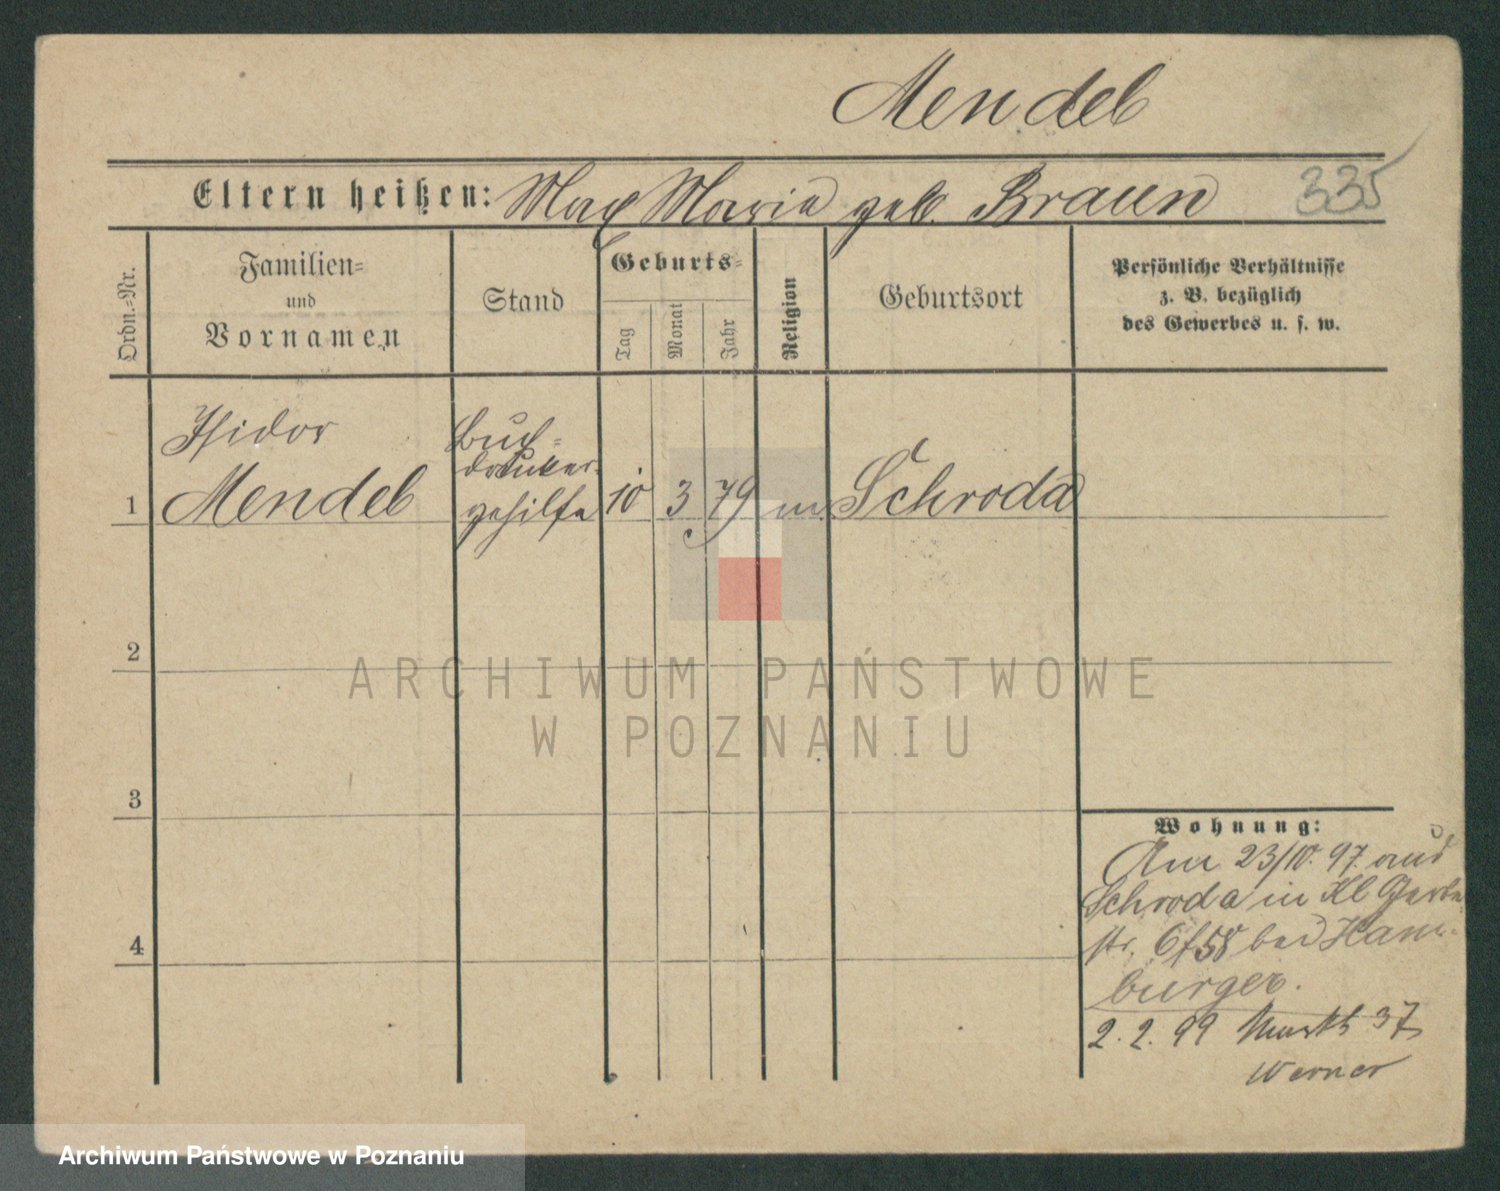 Mendel
Eltern heißen: Max Maria geb. Braun
335
Ordn.-Nr.
Familien-
und
Vornamen
Stand
Geburts-
Tag
Monat
Jahr
Religion
Geburtsort
Persönliche Verhältnisse
z. B. bezüglich
des Gewerbes u. s. w.
Isidor
Mendel
Buch-
drucker-
gehilfe
1
10
3
79
m.
Schroda
2
3
4
Wohnung:
Am 23/10. 97. aus
Schroda in Kl Gerber
str. 6/58 bei Ham-
burger.
2. 2. 99 Markt 37
Werner
ARCHIWUM PAŃSTWOWE
W POZNANIU
Archiwum Państwowe w Poznaniu